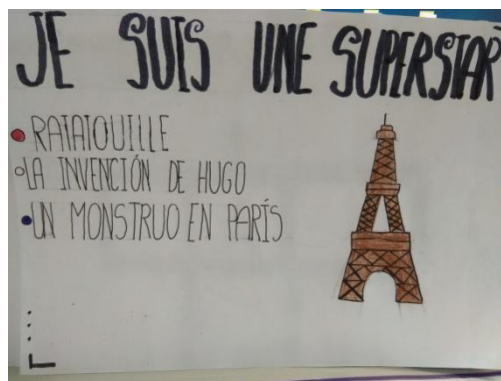 JE SUIS UNE SUPERSTAR
RATATOUILLE
LA INVENCIÓN DE HUGO
UN MONSTRUO EN PARÍS